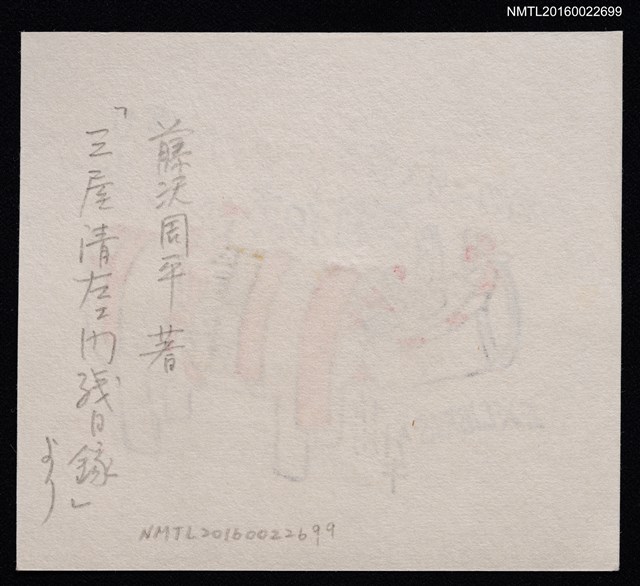 NMTL20160022699
藤沢周平 著
「三屋清左エ門残日録」
より
NMTL20160022699